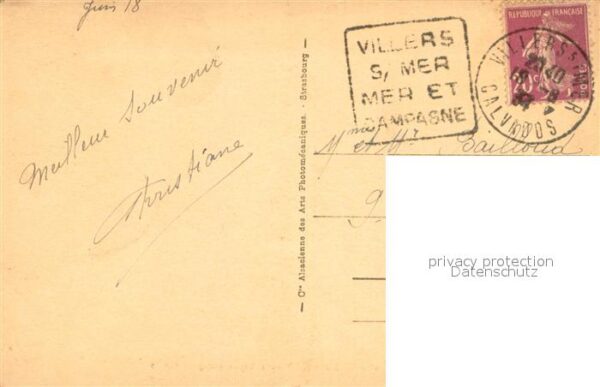 Juin 18
Meilleur Souvenir
Christiane
Cie Alsacienne des Arts Photomécaniques - Strasbourg
VILLERS
S/ MER
MER ET
CAMPAGNE
REPUBLIQUE FRANÇAISE
20c
VILLERS S MER
CALVADOS
et Mr
privacy protection
Datenschutz